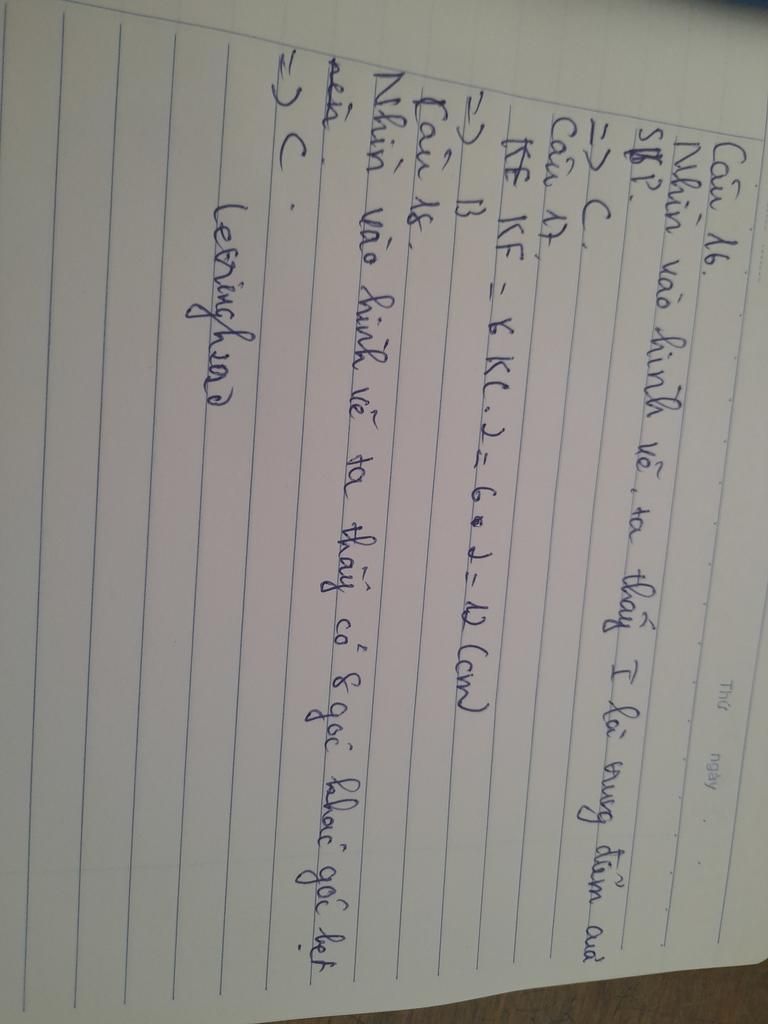 Thứ ngày
Câu 16.
Nhìn vào hình vẽ, ta thấy I là trung điểm của
SP.
=> C.
Câu 17.
KF = KC . 2 = 6 . 2 = 12 (cm)
=> B
Câu 18.
Nhìn vào hình vẽ ta thấy có 8 góc khác góc bẹt
=> C.
letrunghsao